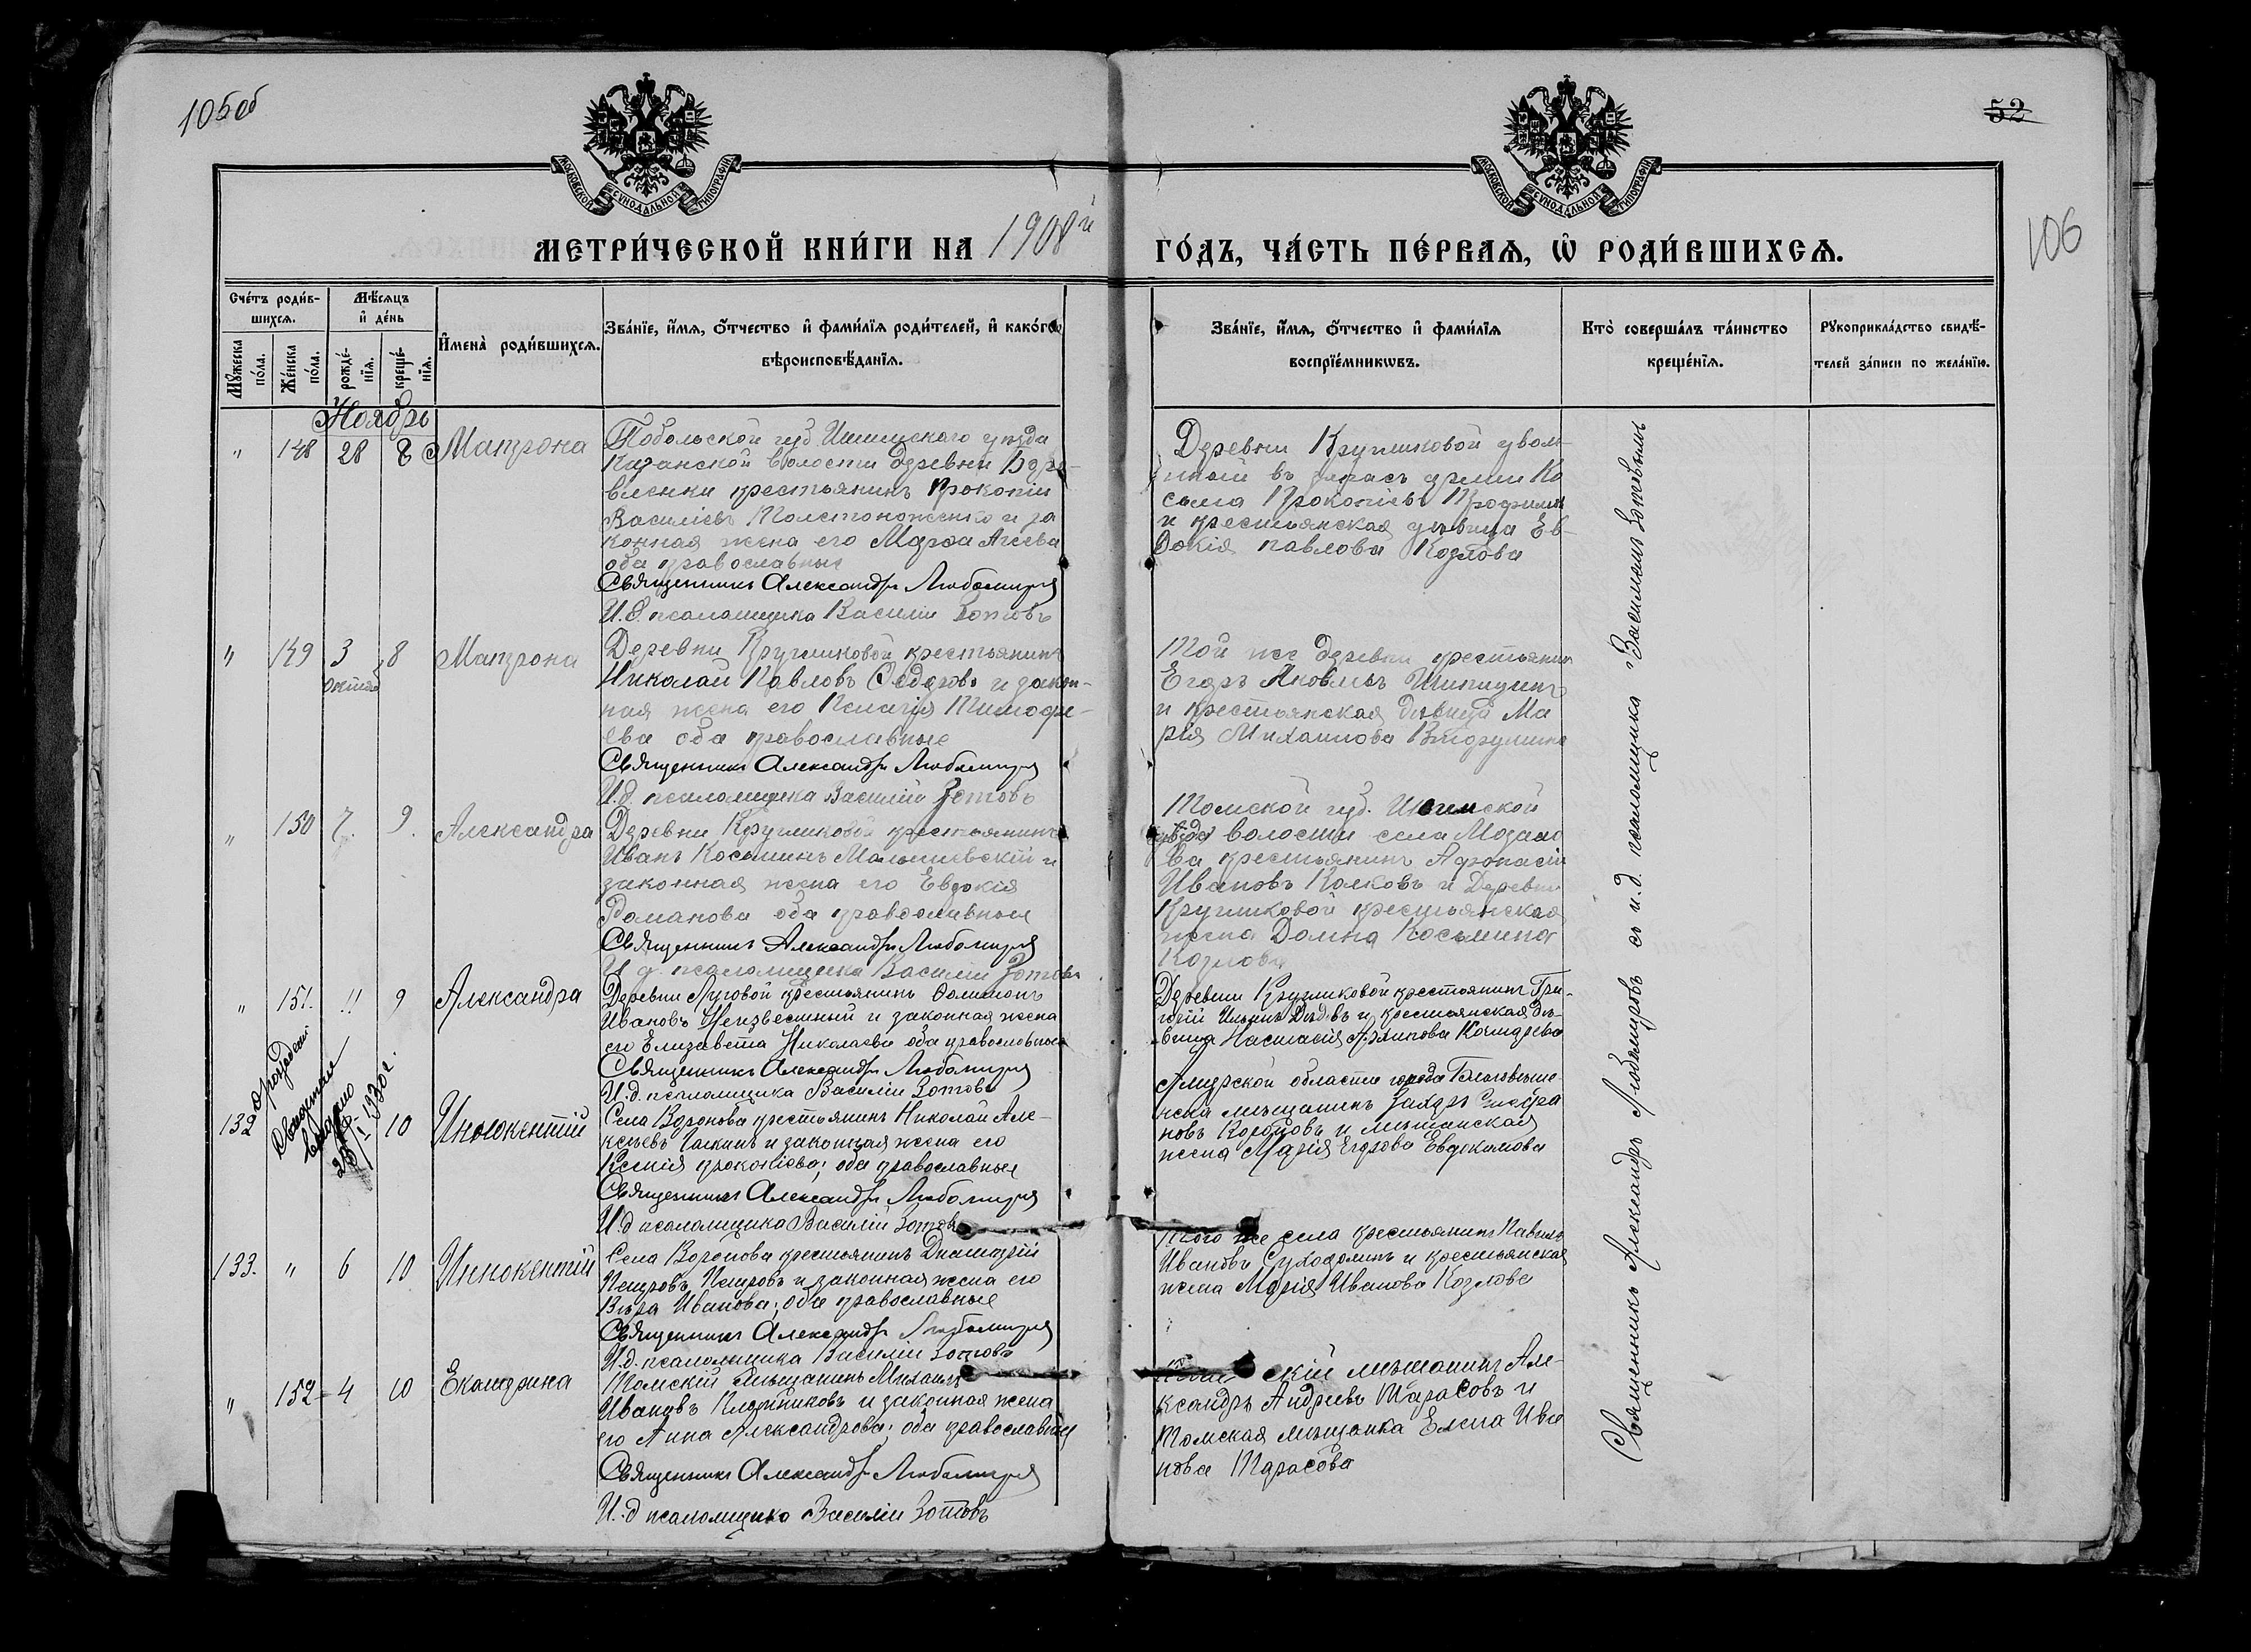 105об
52
106
МОСКОВСКОЙ СУНОДАЛЬНОЙ ТИПОГРАФІИ
МОСКОВСКОЙ СУНОДАЛЬНОЙ ТИПОГРАФІИ
МЕТРИ́ЧЕСКОЙ КНИ́ГИ НА 1908й
ГО́ДЪ, ЧА́СТЬ ПЕ́РВАѦ, Ѽ РОДИ́ВШИХСѦ.
Счéтъ роди́в-
шихсѧ.
Мꙋ́жеска по́ла.
Жéнска по́ла.
Мѣ́сѧцъ
и҆ дéнь
рождé-
нїѧ.
крещé-
нїѧ.
И҆мена̀ роди́вшихсѧ.
Зва́нїе, и҆́мѧ, ѻ҆́тчество и҆ фами́лїѧ роди́телей, и҆ како́гѡ
вѣроисповѣ́данїѧ.
Зва́нїе, и҆́мѧ, ѻ҆́тчество и҆ фами́лїѧ
воспрїéмникѡвъ.
Кто̀ соверша́лъ та́инство
крещéнїѧ.
Рꙋкоприкла́дство свидѣ́-
телей за́писи по жела́нїю.
Ноябрь
" 148 28 8 Матрона
Тобольской губ. Ишимскаго уѣзда
Казанской волости деревни
вленки крестьянинъ Прокопій
Василіевъ Толстоноженко и за
конная жена его Марѳа Агеева
оба православные
Священникъ Александръ Любомировъ
И.д. псаломщика Василій Зотовъ
Деревни Кругликовой увол-
ный въ запасъ арміи Ко
сьма Прокопьевъ
и крестьянская дѣвица Ев-
докія Павлова Козлова
" 149 3 8 Матрона
Октяб
Деревни Кругликовой крестьянинъ
Николай Павловъ Ѳедоровъ и закон-
ная жена его Пелагія Тимоѳе-
ева оба православные
Священникъ Александръ Любомировъ
И.д. псаломщика Василій Зотовъ
Той же деревни крестьянинъ
Егоръ Яковлевъ Шипицинъ
и крестьянская дѣвица Ма
рія Михаилова
" 150 7. 9. Александра
Деревни Кругликовой крестьянинъ
Иванъ Косьминъ Малышевскій и
законная жена его Евдокія
Романова оба православные
Священникъ Александръ Любомировъ
И.д. псаломщика Василій Зотовъ
Томской губ.
волости села
ва крестьянинъ Афонасій
Ивановъ Колковъ и Деревни
Кругликовой крестьянская
жена Домна Косьмина
Козлова
" 151. 11 9 Александра
Деревни Луговой крестьянинъ Филимонъ
Ивановъ Неизвестный и законная жена
его Елизавета Николаева оба православные
Священникъ Александръ Любомировъ
И.д. псаломщика Василій Зотовъ
Деревни Кругликовой крестьянинъ Гри-
горій Ильинъ Дѣдовъ и крестьянская дѣ-
вица Настасія Архипова
132 10 Иннокентій
о рождении
Свидетел
выдано
1930г.
Села Воронова крестьянинъ Николай Але-
ксѣевъ и законная жена его
Ксенія Прокопіева; оба православные
Священникъ Александръ Любомировъ
И.д псаломщика Василій Зотовъ
Амурской области города Благовѣще-
нска мѣщанинъ Захаръ
новъ и мѣщанская
жена Марія Егорова Евдокимова
133. " 6 10 Иннокентій
Села Воронова крестьянинъ Димитрій
Петровъ Петровъ и законная жена его
Вѣра Иванова; оба православные
Священникъ Александръ Любомировъ
И.д. псаломщика Василій Зотовъ
Того же села крестьянинъ Павелъ
Ивановъ Суходолинъ и крестьянская
жена Марія Иванова Козлова
" 152 4 10 Екатерина
Томскій мѣщанинъ Михаилъ
Ивановъ Плотниковъ и законная жена
его Анна Александрова; оба православные
Священникъ Александръ Любомировъ
И.д псаломщика Василій Зотовъ
скій мѣщанинъ Але-
ксандръ Андреевъ Тарасовъ и
Томская мѣщанка Елена Ива
нова Тарасова
Священникъ Александръ Любомировъ съ и.д. псаломщика Василіемъ Зотовымъ